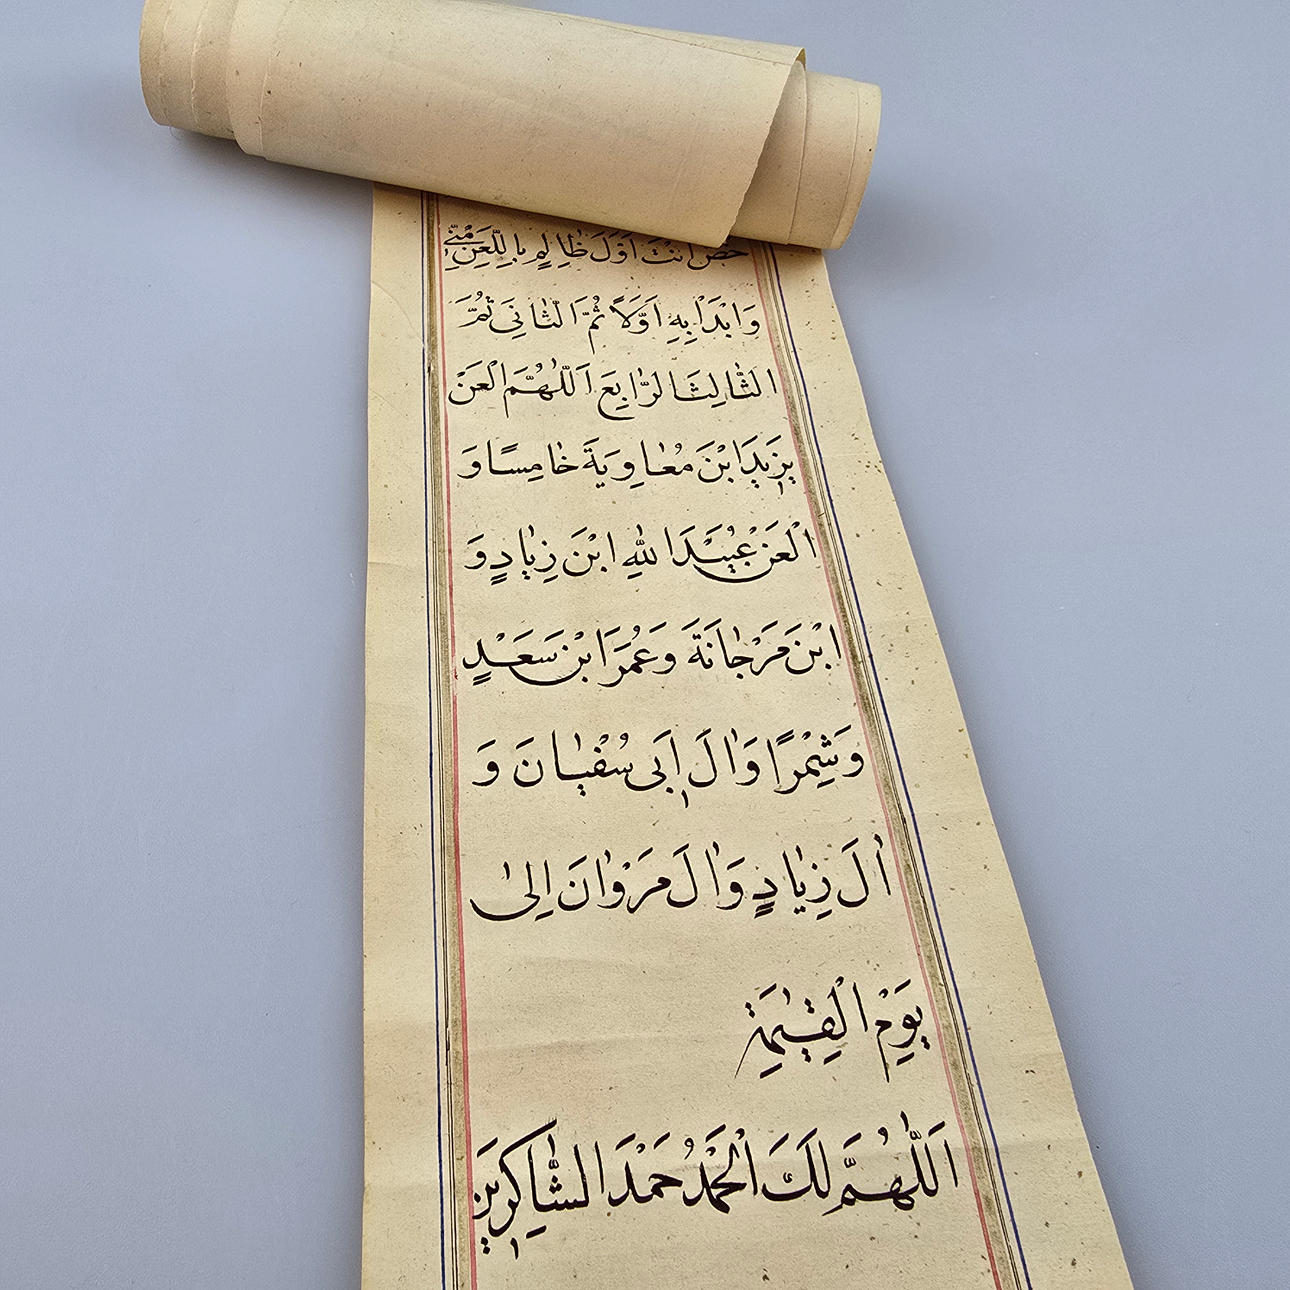 خُصَّ اَنْتَ اَوَّلَ ظَالِمٍ بِاللَّعْنِ مِنّی
وَابْدَاْ بِهِ اَوَّلاً ثُمَّ الثَّانِیَ ثُمَّ
الثَّالِثَ الرَّابِعَ اَللّٰهُمَّ الْعَنْ
یَزیدَ ابْنَ مُعٰاوِیَةَ خٰامِسًا وَ
الْعَنْ عُبَیْدَ اللّٰهِ ابْنَ زِیٰادٍ وَ
ابْنَ مَرْجٰانَةَ وَ عُمَرَ ابْنَ سَعْدٍ
وَ شِمْرًا وَ اٰلَ اَبی سُفْیٰانَ وَ
اٰلَ زِیٰادٍ وَ اٰلَ مَرْوٰانَ اِلیٰ
یَوْمِ الْقِیٰمَةِ
اَللّٰهُمَّ لَكَ الْحَمْدُ حَمْدَ الشّٰاكِرینَ